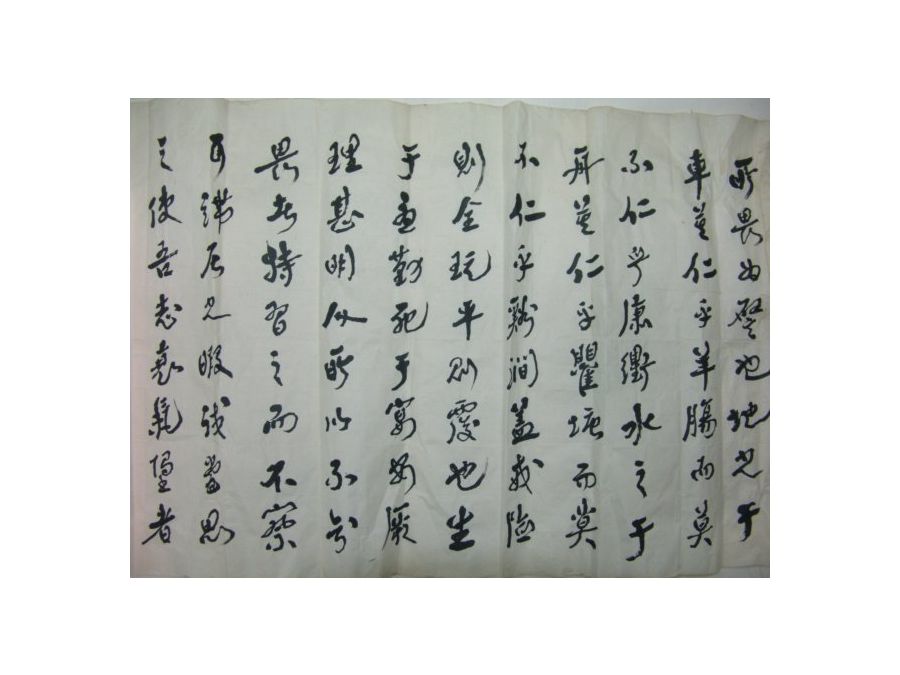 所畏如也地之于
車莫仁乎羊腸而莫
不仁乎康衢水之于
舟莫仁乎瞿塘而莫
不仁乎谿澗蓋戒險
則全玩平則覆也生
于憂勤死于宴安厥
理甚明人所以不知
畏者特習之而不察
耳講居之暇我嘗思
之使吾志衰氣惰者